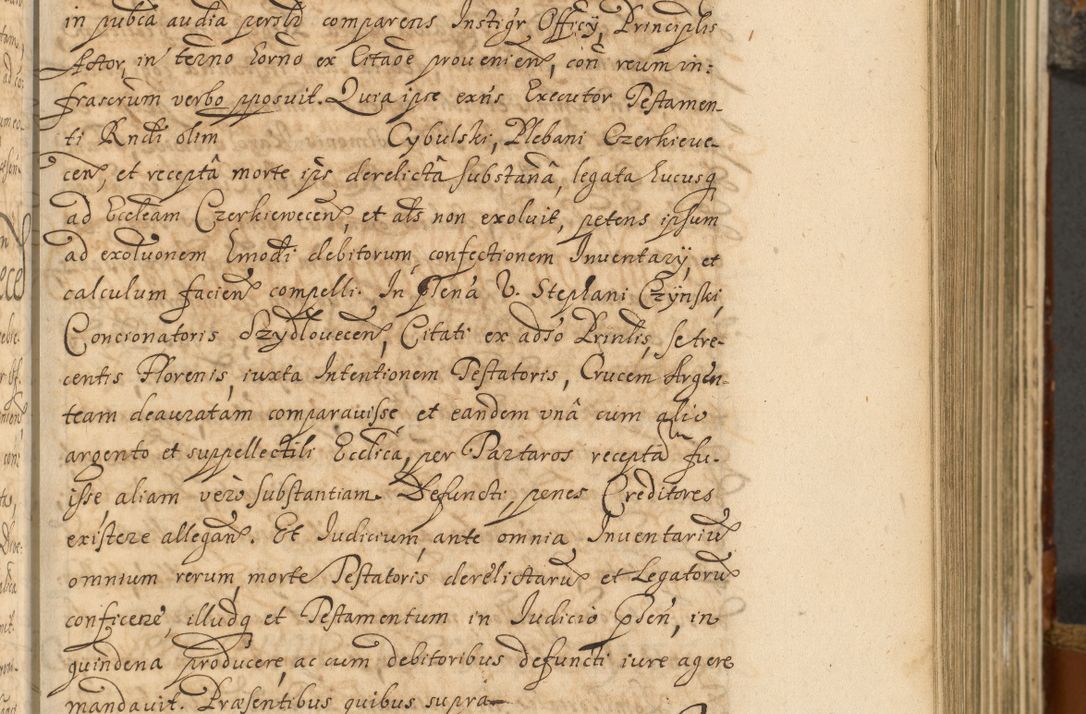 in pubca audia persli comparens Instigr Officy, Principlis
Actor, in terno horno ex Citaõe provenien, coñ reum in:
frascrum verbo pposuit. Quia ipse exns Executor Testamen-
ti Rndi olim Cybulski, Plebani Czerkieve-
cen, et receptâ morte ips derelictâ substañâ, legata hucusq
ad Eccleam Czerkiewecen, et als non exoluit, petens ipsum
ad exolvonem hmodi debitorum, confectionem Inventary, et
calculum facien compelli. In pleña V. Stephani Czynski,
Concionatoris Szydlovecen, Citati ex adso Prinlis, se tre-
centis Florenis, iuxta Intentionem Testatoris, Crucem Argen-
team deauratam comparavisse, et eandem vnâ cum alio
argento et suppellectili Ecclîca, per Partaros recepta fu-
isse, aliam verò substantiam Defuncti, penes Creditores
existere allegan. Et Iudicium, ante omnia Inventariũ
omnium rerum, morte Testatoris derelictarũ et Legatorũ
conficere, illudq et Testamentum in Iudicio plen, in
quindena producere, ac cum debitoribus defuncti iure agere
mandavit. Præsentibus quibus supra